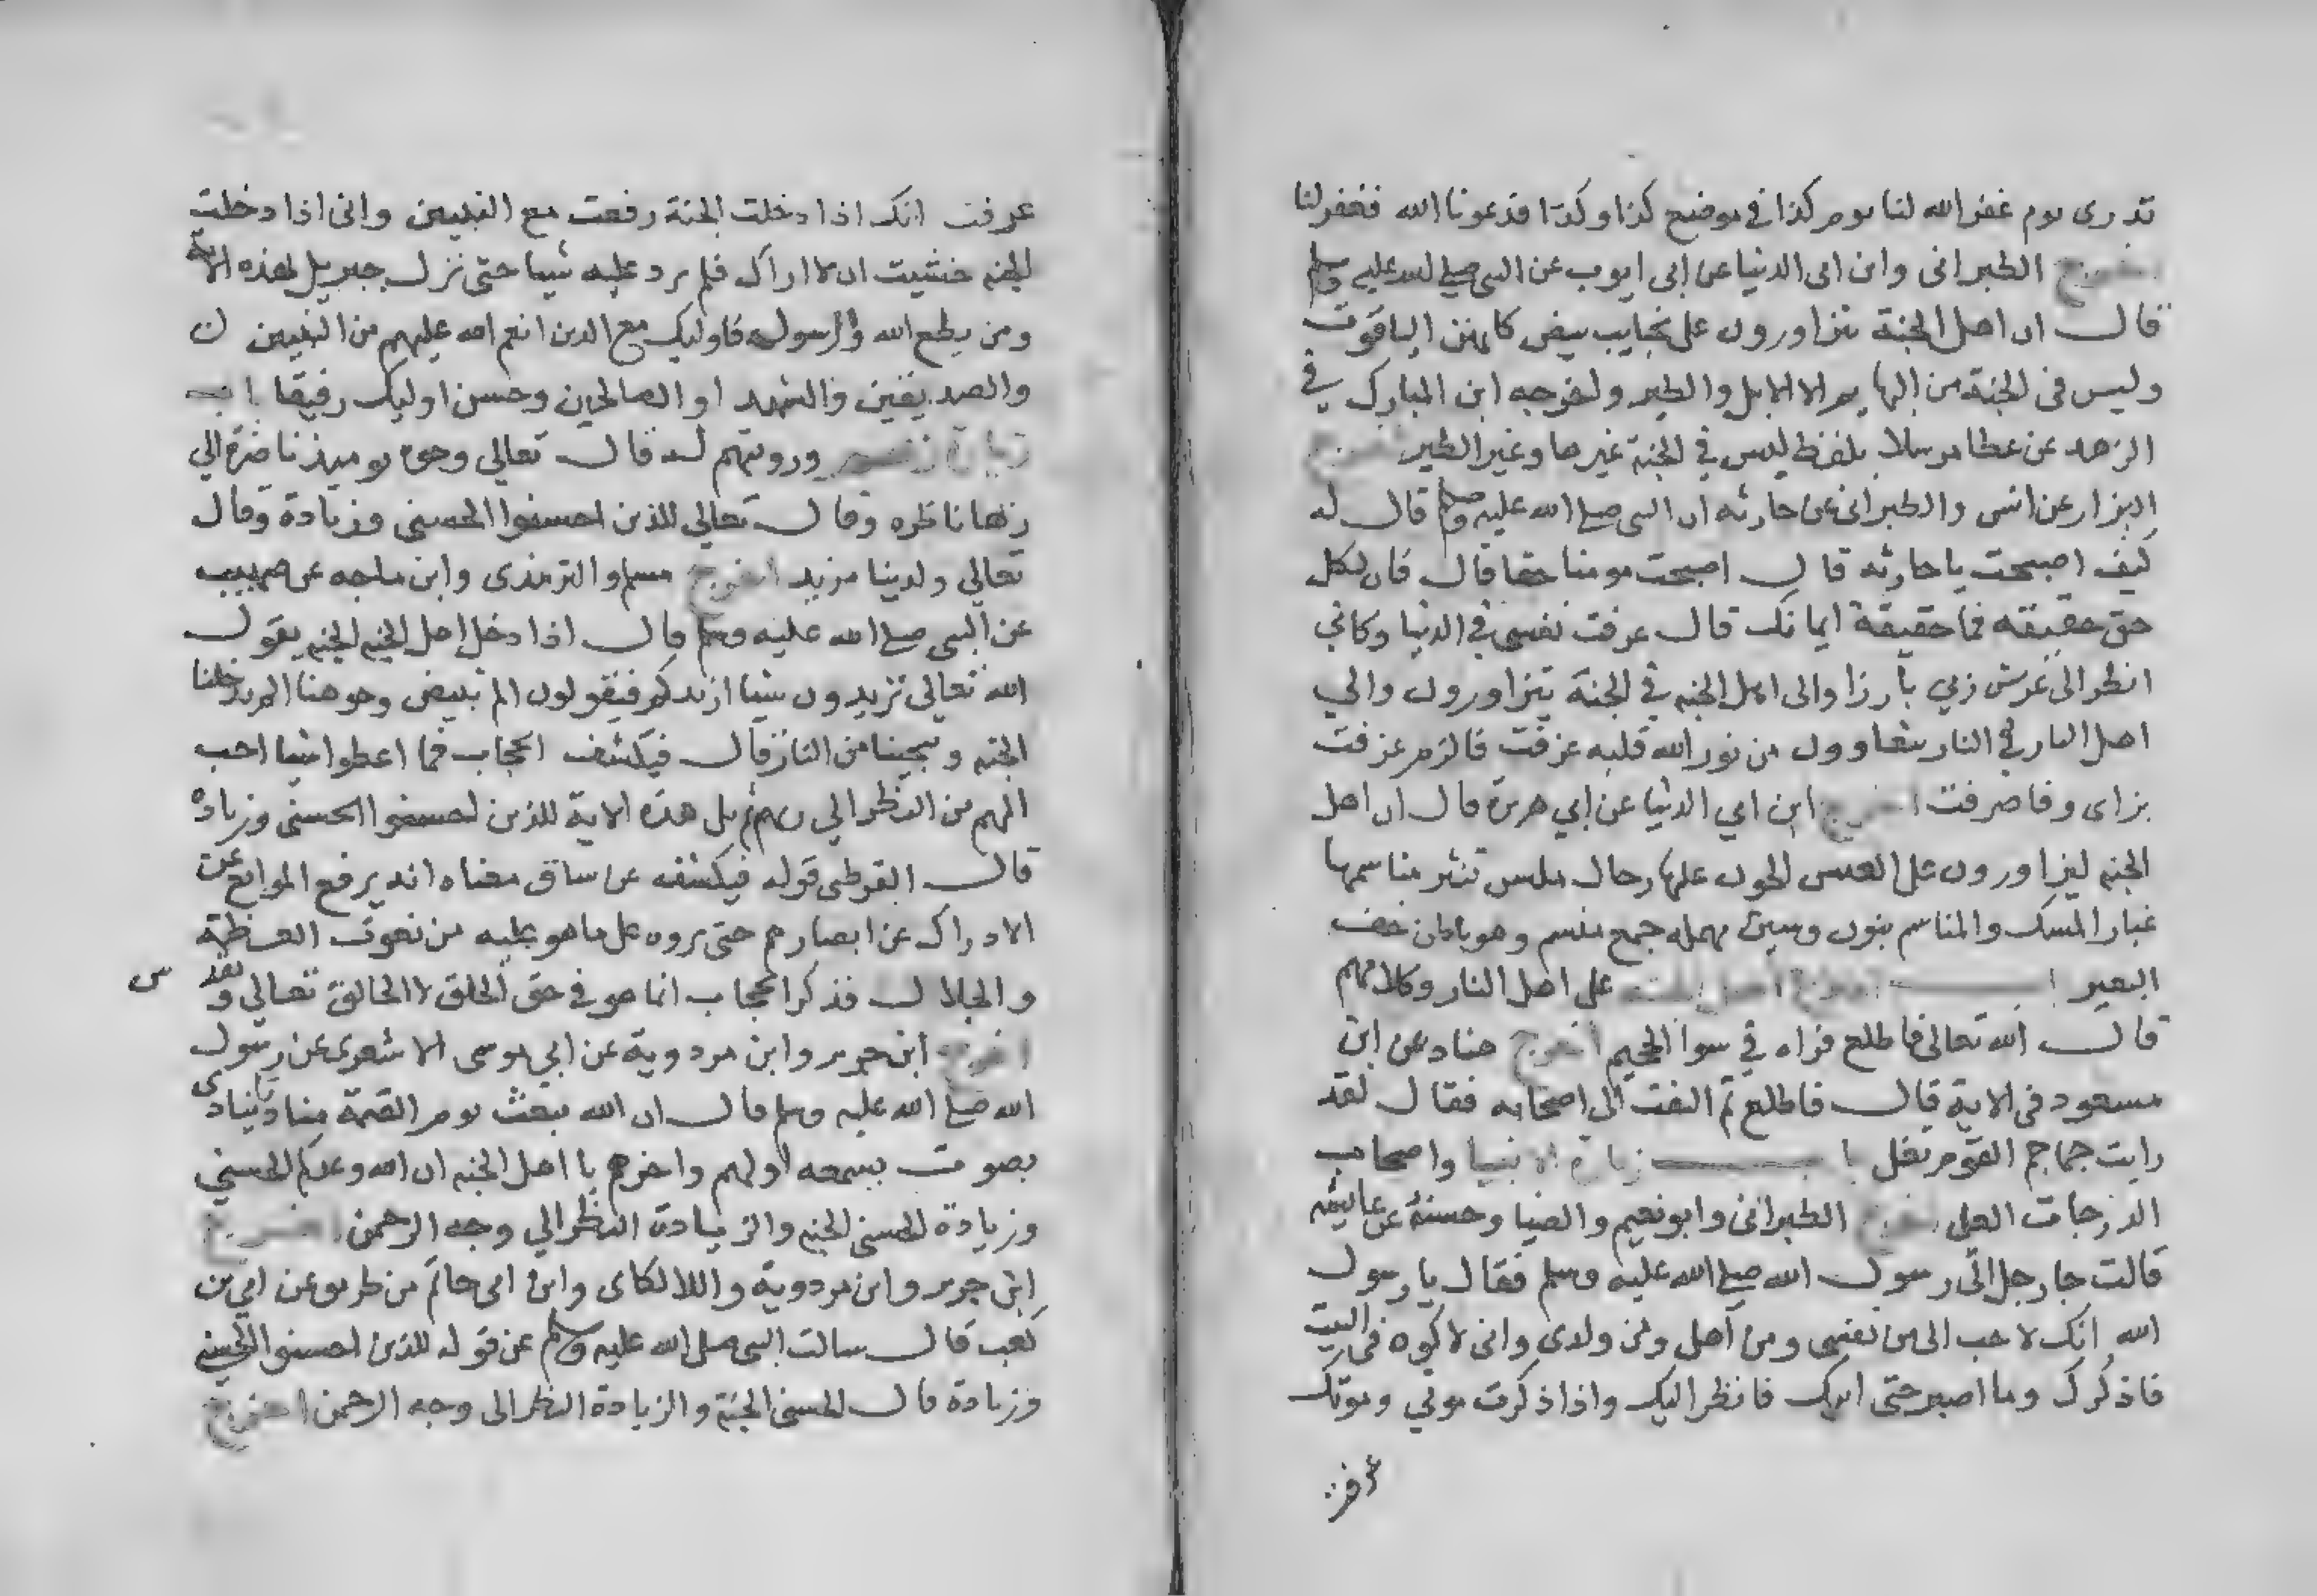 تدرى يوم غفر الله لنا يوم كذا في موضع كذا وكذا فدعونا الله فغفر لنا
اخرج الطبرانى وابن ابى الدنيا عن ابى ايوب عن النبى صلى الله عليه وسلم
قال ان اهل الجنة يتزاورون على نجايب بيض كانهن الياقوت
وليس فى الجنة من البهايم الا الابل والطير واخرجه ابن المبارك في
الزهد عن عطا مرسلا بلفظ ليس في الجنة غيرها وغير الطير اخرج
البزار عن انس والطبرانى عن حارثه ان النبى صلى الله عليه وسلم قال له
كيف اصبحت يا حارثه قال اصبحت مومنا حقا قال فان لكل
حق حقيقه فما حقيقة ايمانك قال عرفت نفسي في الدنيا وكاني
انظر الى عرش ربي بارزا والى اهل الجنه في الجنة يتزاورون والي
اهل النار في النار يتعاوون من نور الله قلبه عرفت فالزم عرفت
اخرج ابن ابي الدنيا عن ابي هريرة قال ان اهل
الجنه ليزاورون على العيس الجون عليها رحال الميس تثير مناسمها
غبار المسك والمناسم بنون وسين مهمله جمع منسم وهو باطن خف
البعير باب اطلاع اهل الجنة على اهل النار وكلامهم
قال الله تعالى فاطلع فراه في سوا الجحيم اخرج هناد عن ابن
مسعود فى الاية قال فاطلع ثم التفت الى اصحابه فقال لقد
رايت جماجم القوم تغلى باب زيارة الانبيا واصحاب
الدرجات العلى اخرج الطبرانى وابو نعيم والضيا وحسنه عن عايشه
قالت جا رجل الى رسول الله صلى الله عليه وسلم فقال يا رسول
الله انك لاحب الى من نفسى ومن اهلى ومن ولدى وانى لاكون فى البيت
فاذكرك وما اصبر حتى اتيك فانظر اليك واذا ذكرت موتي وموتك
عرفت انك اذا دخلت الجنة رفعت مع النبيين وانى اذا دخلت
الجنه خشيت ان لا اراك فلم يرد عليه شيا حتى نزل جبريل بهذه الاية
ومن يطع الله والرسول فاوليك مع الدين انعم الله عليهم من النبيين
والصديقين والشهدا والصالحين وحسن اوليك رفيقا باب
زيارة ربهم ورويتهم له قال تعالي وجوه يوميذ ناضرة الي
ربها ناظره وقال تعالي للذين احسنوا الحسنى وزيادة وقال
تعالي ولدينا مزيد اخرج مسلم والترمذى وابن ماجه عن صهيب
عن النبى صلى الله عليه وسلم قال اذا دخل اهل الجنه الجنه يقول
الله تعالى تريدون شيا ازيدكم فيقولون الم تبيض وجوهنا الم تدخلنا
الجنه وتنجينا من النار قال فيكشف الحجاب فما اعطوا شيا احب
اليهم من النظر الي ربهم ثم تلى هذه الاية للذين احسنوا الحسنى وزياده
قال القرطبى قوله فيكشف عن ساق معناه انه يرفع الموانع عن
الادراك عن ابصارهم حتى يروه على ما هو عليه من نعوت العظمة
والجلال فذكر الحجاب انما هو في حق الخلق لا الخالق تعالي وتقدس
اخرج ابن جرير وابن مردوية عن ابي موسى الاشعرى عن رسول
الله صلى الله عليه وسلم قال ان الله يبعث يوم القيمة مناديا ينادى
بصوت يسمعه اولهم واخرهم يا اهل الجنه ان الله وعدكم الحسني
وزيادة الحسنى الجنه والزيادة النظر الي وجه الرحمن اخرج
ابن جرير وابن مردوية واللالكاى وابن ابى حاتم من طريق عن ابي بن
كعب قال سالت النبى صلى الله عليه وسلم عن قوله للذين احسنوا الحسنى
وزيادة قال الحسنى الجنة والزيادة النظر الى وجه الرحمن اخرج